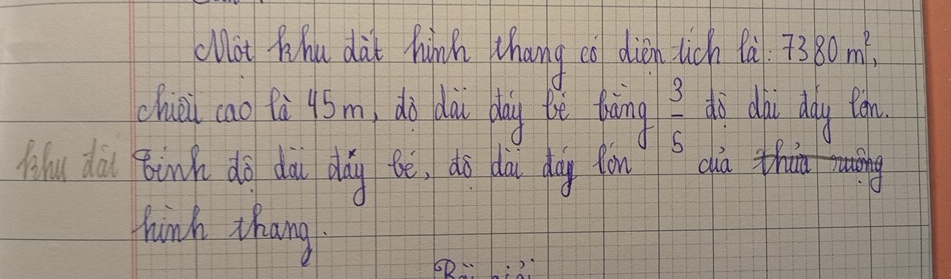 Một khu đất hình thang có diện tích là: 7380 m²,
chiều cao là 45 m, độ dài đáy bé bằng 3/5 độ dài đáy lớn.
khu đất Tính độ dài đáy bé, độ dài đáy lớn của thửa ruộng
hình thang.
Bài giải